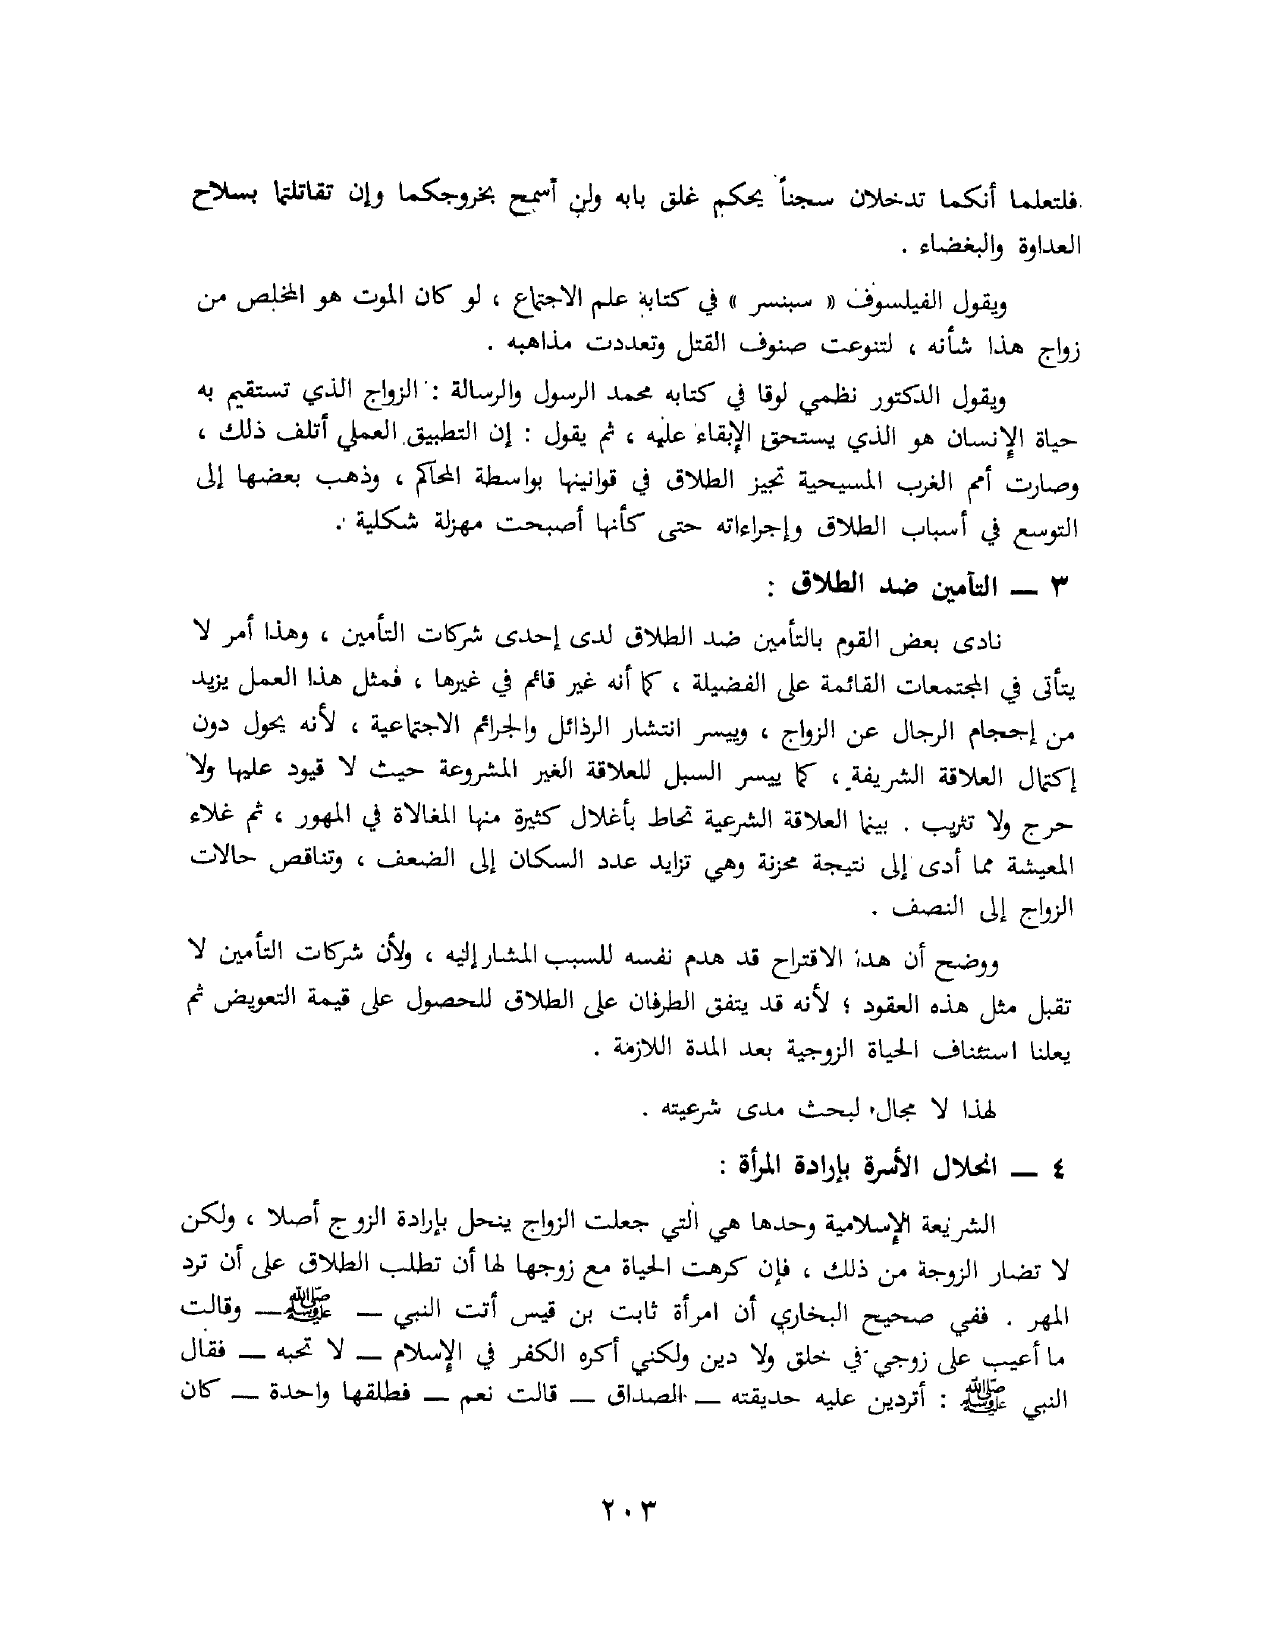 فلتعلما أنكما تدخلان سجناً يحكم غلق بابه ولن أسمح بخروجكما وإن تقاتلتما بسلاح
العداوة والبغضاء .
ويقول الفيلسوف « سبنسر » في كتابة علم الاجتماع ، لو كان الموت هو المخلص من
زواج هذا شأنه ، لتنوعت صنوف القتل وتعددت مذاهبه .
ويقول الدكتور نظمي لوقا في كتابه محمد الرسول والرسالة : الزواج الذي تستقيم به
حياة الإنسان هو الذي يستحق الإبقاء عليه ، ثم يقول : إن التطبيق العملي أتلف ذلك ،
وصارت أمم الغرب المسيحية تجيز الطلاق في قوانينها بواسطة المحاكم ، وذهب بعضها إلى
التوسع في أسباب الطلاق وإجراءاته حتى كأنها أصبحت مهزلة شكلية .
٣ — التأمين ضد الطلاق :
نادى بعض القوم بالتأمين ضد الطلاق لدى إحدى شركات التأمين ، وهذا أمر لا
يتأتى في المجتمعات القائمة على الفضيلة ، كما أنه غير قائم في غيرها ، فمثل هذا العمل يزيد
من إحجام الرجال عن الزواج ، وييسر انتشار الرذائل والجرائم الاجتماعية ، لأنه يحول دون
إكتمال العلاقة الشريفة ، كما ييسر السبل للعلاقة الغير المشروعة حيث لا قيود عليها ولا
حرج ولا تثريب . بينما العلاقة الشرعية تحاط بأغلال كثيرة منها المغالاة في المهور ، ثم غلاء
المعيشة مما أدى إلى نتيجة محزنة وهي تزايد عدد السكان إلى الضعف ، وتناقص حالات
الزواج إلى النصف .
ووضح أن هذا الاقتراح قد هدم نفسه للسبب المشار إليه ، ولأن شركات التأمين لا
تقبل مثل هذه العقود ؛ لأنه قد يتفق الطرفان على الطلاق للحصول على قيمة التعويض ثم
يعلنا استئناف الحياة الزوجية بعد المدة اللازمة .
لهذا لا مجال لبحث مدى شرعيته .
٤ — انحلال الأسرة بإرادة المرأة :
الشريعة الإسلامية وحدها هي التي جعلت الزواج ينحل بإرادة الزوج أصلا ، ولكن
لا تضار الزوجة من ذلك ، فإن كرهت الحياة مع زوجها لها أن تطلب الطلاق على أن ترد
المهر . ففي صحيح البخاري أن امرأة ثابت بن قيس أتت النبي — ﷺ — وقالت
ما أعيب على زوجي في خلق ولا دين ولكني أكره الكفر في الإسلام — لا تحبه — فقال
النبي ﷺ : أتردين عليه حديقته — الصداق — قالت نعم — فطلقها واحدة — كان
٢٠٣